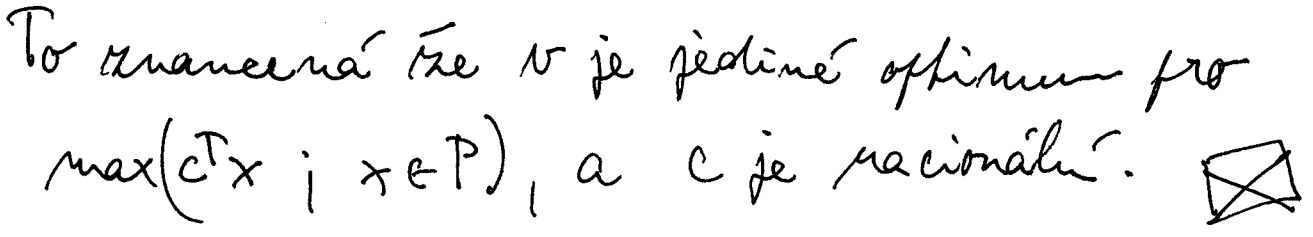 To znamená že v je jediné optimum pro
max(cᵀx ; x ∈ P), a c je racionální.